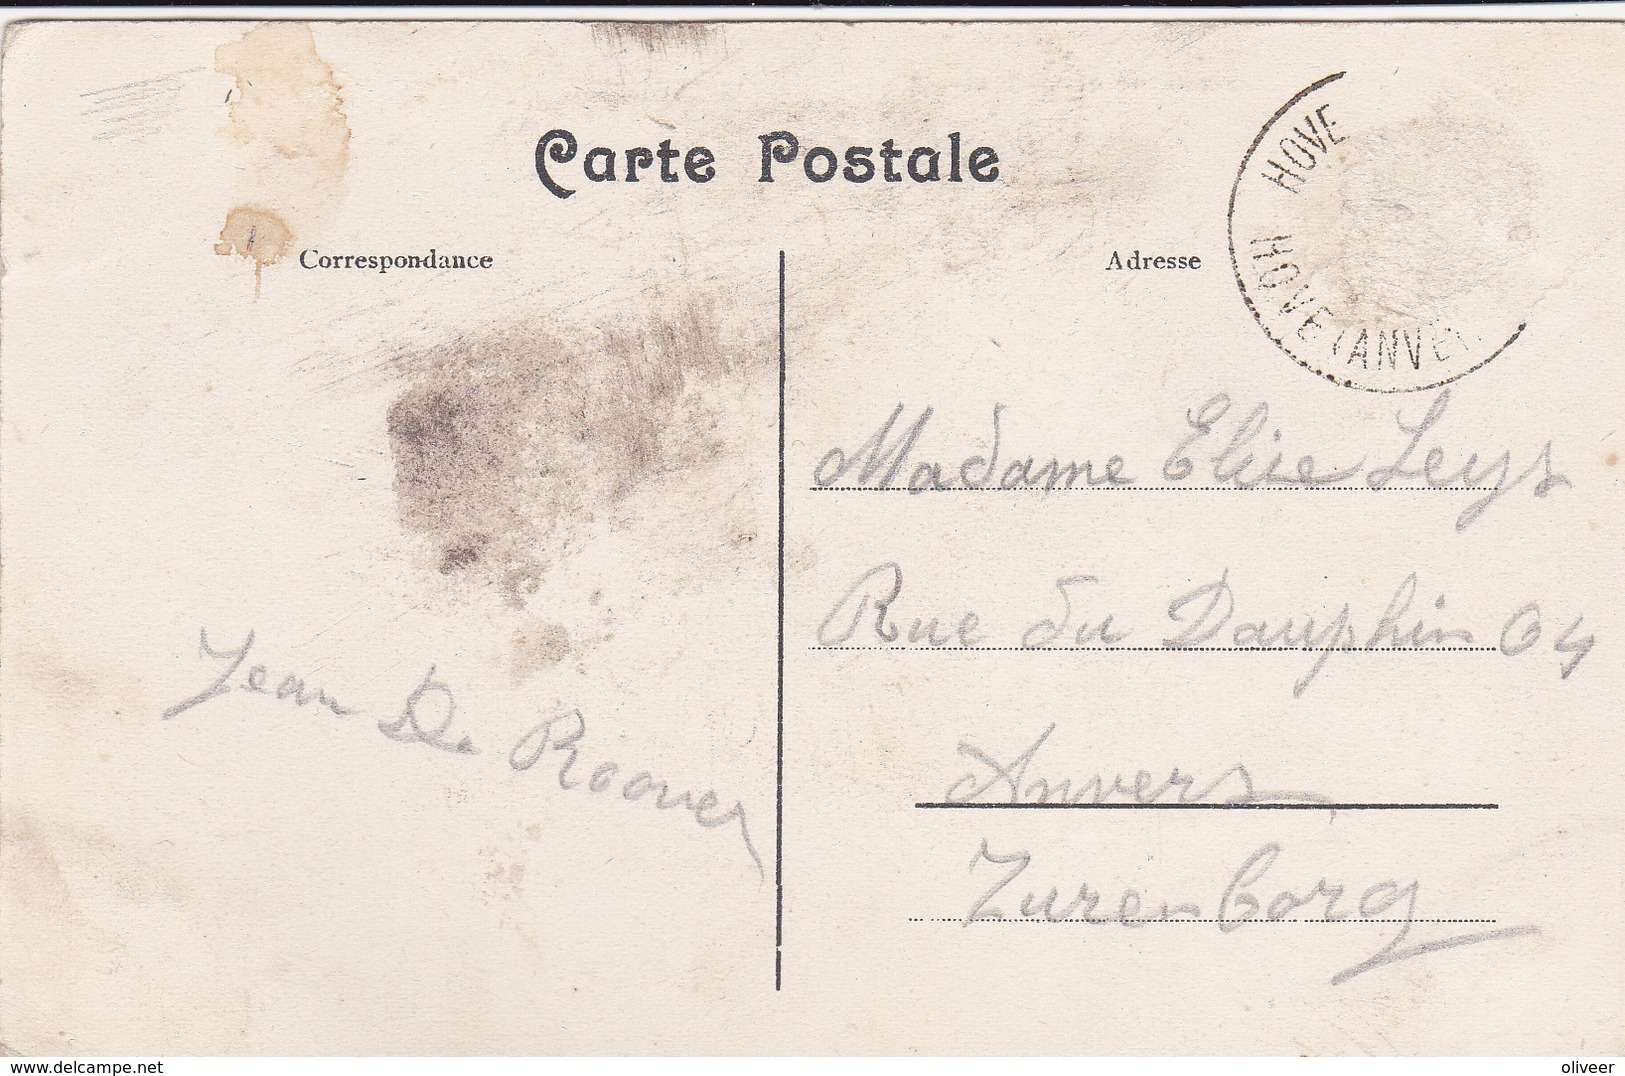 Carte Postale
Correspondance
Adresse
HOVE
HOVE (ANVE
Madame Elise Leys
Rue du Dauphin 04
Anvers
Zurenborg
Jean De Roover
www.delcampe.net
oliveer